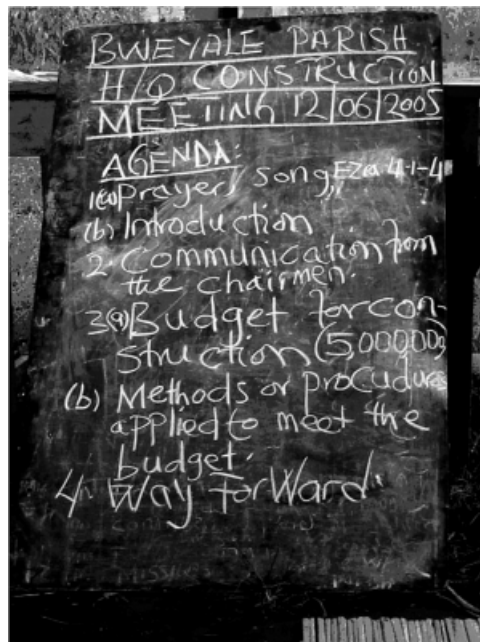 BWEYALE PARISH
H/Q CONSTRUCTION
MEETING 12/06/2005
AGENDA:
1(a) Prayer, song, Ezra 4-1-4
(b) Introduction
2. Communication from
the chairmen.
3(a) Budget for con-
struction (5,000,000)
(b) Methods or procudures
applied to meet the
budget.
4. Way forWard.